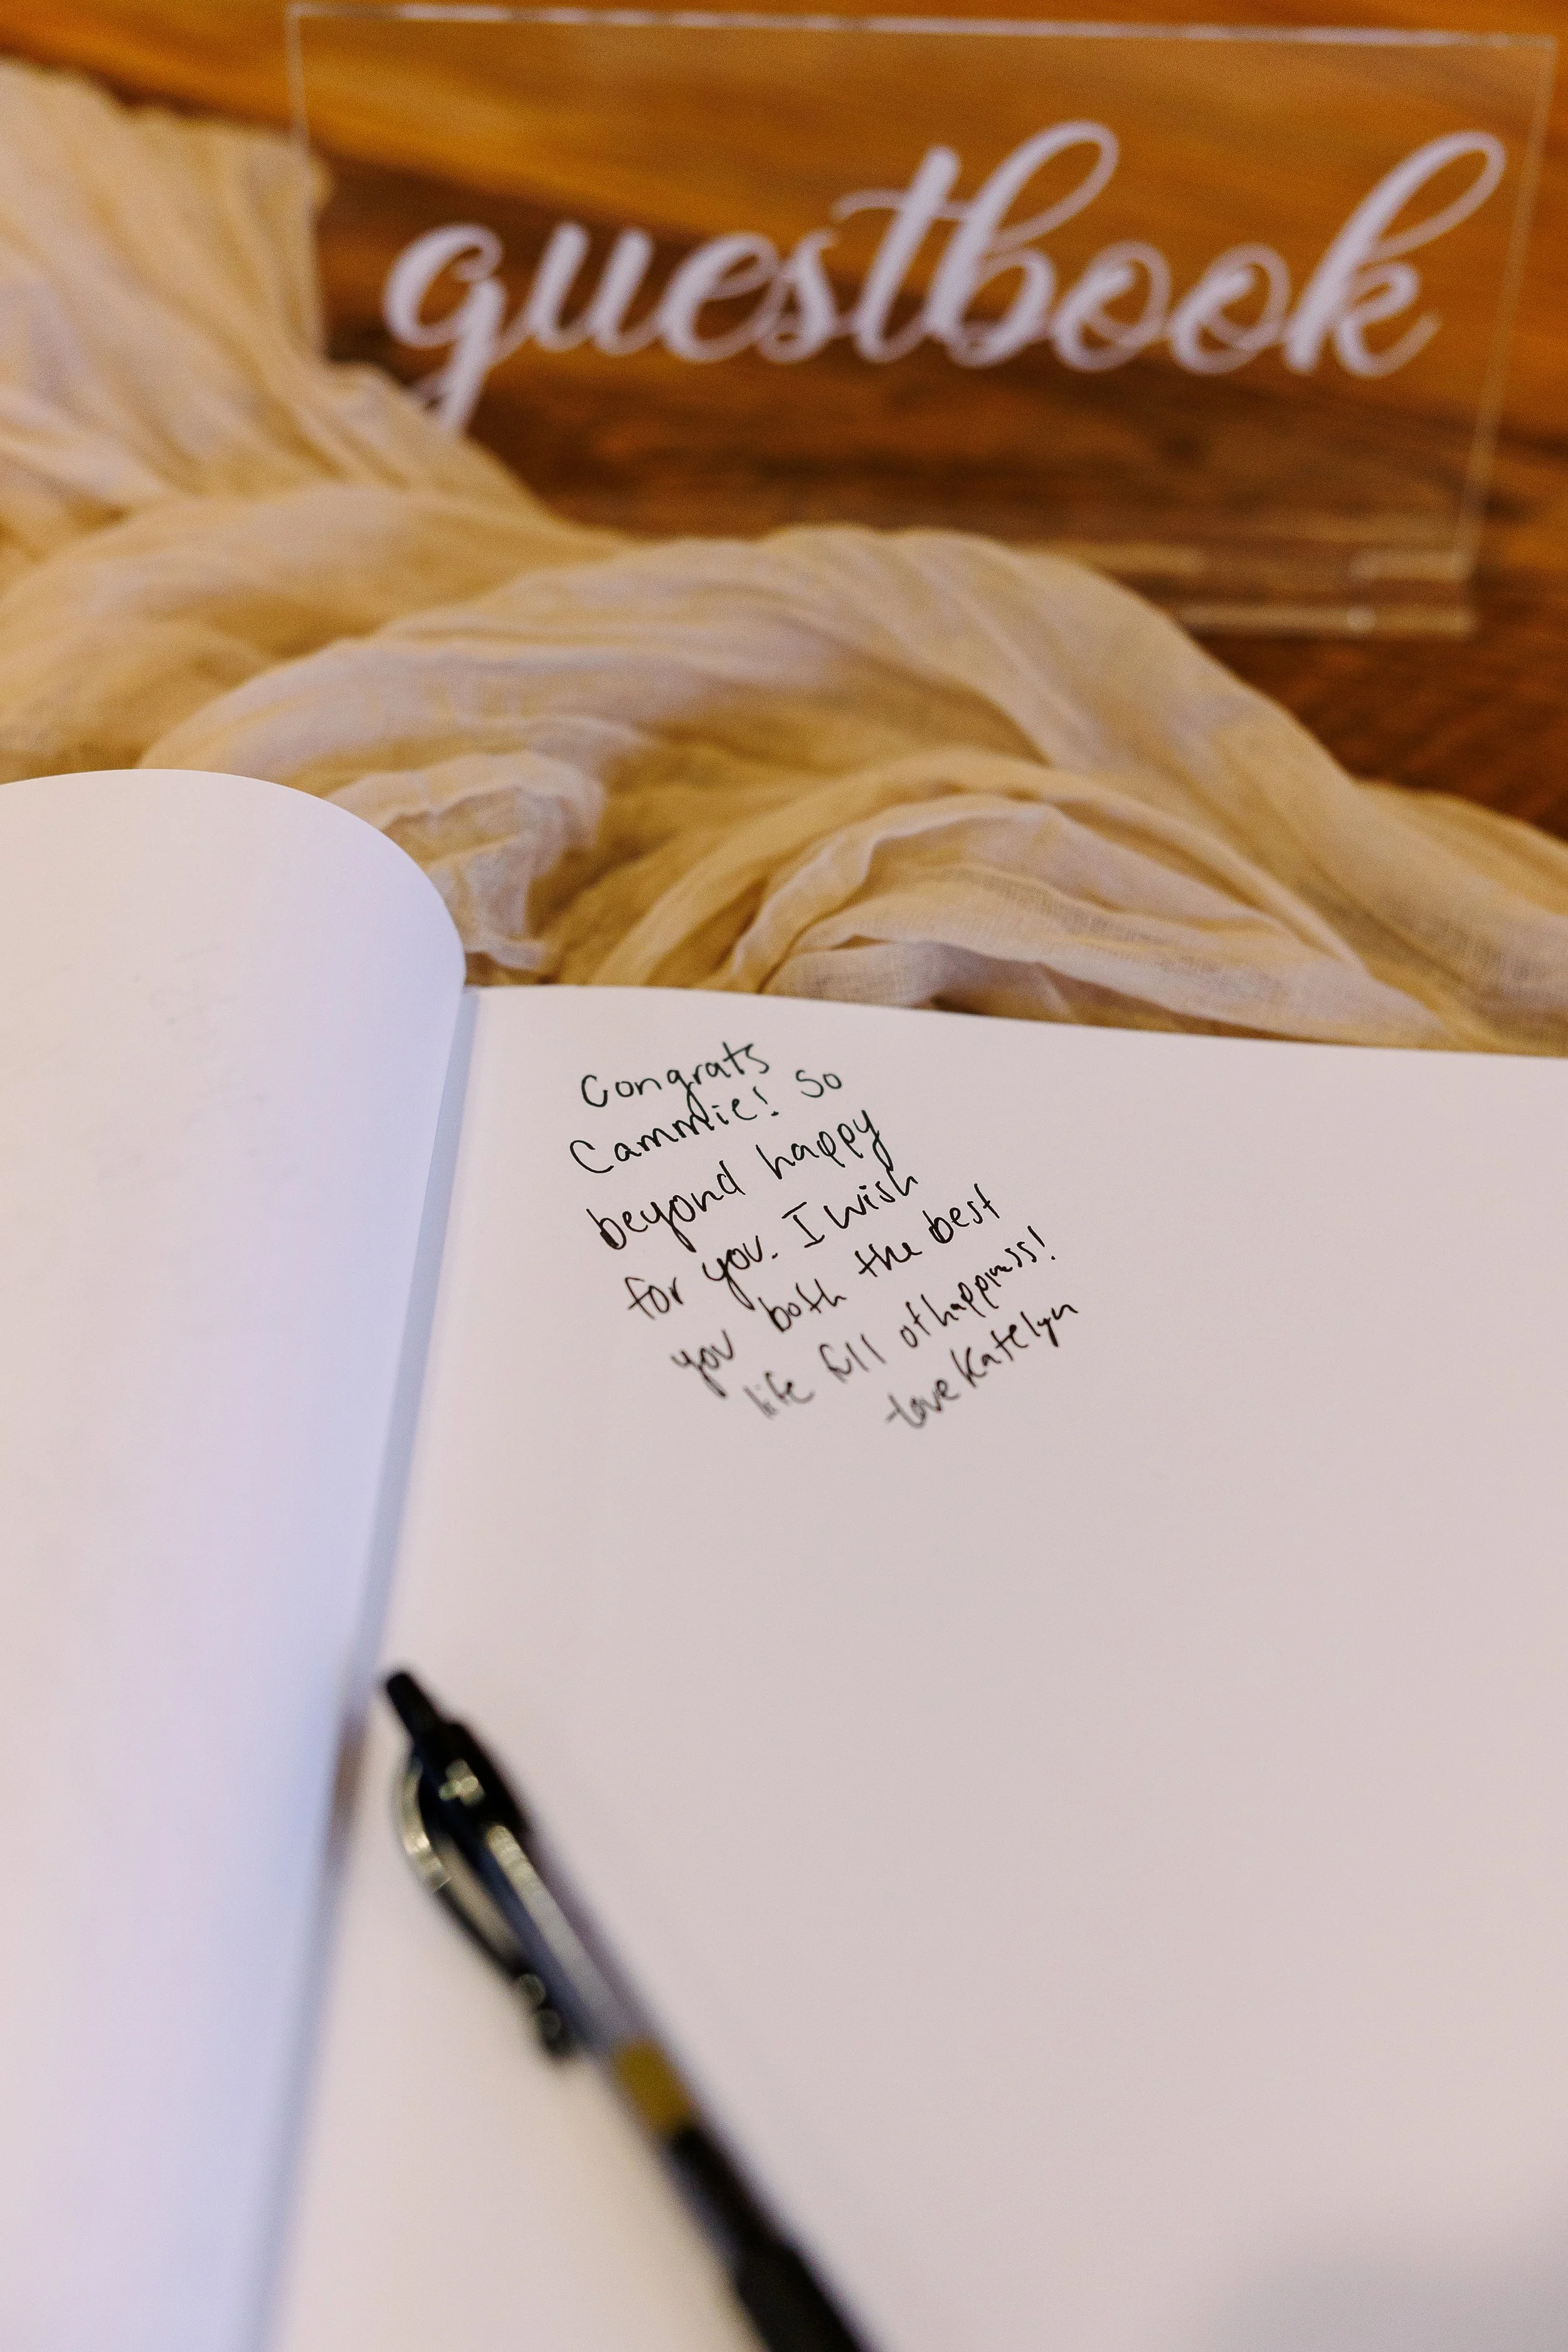 guestbook
Congrats
Cammie! So
beyond happy
for you. I wish
you both the best
life full of happiness!
-Love Katelyn